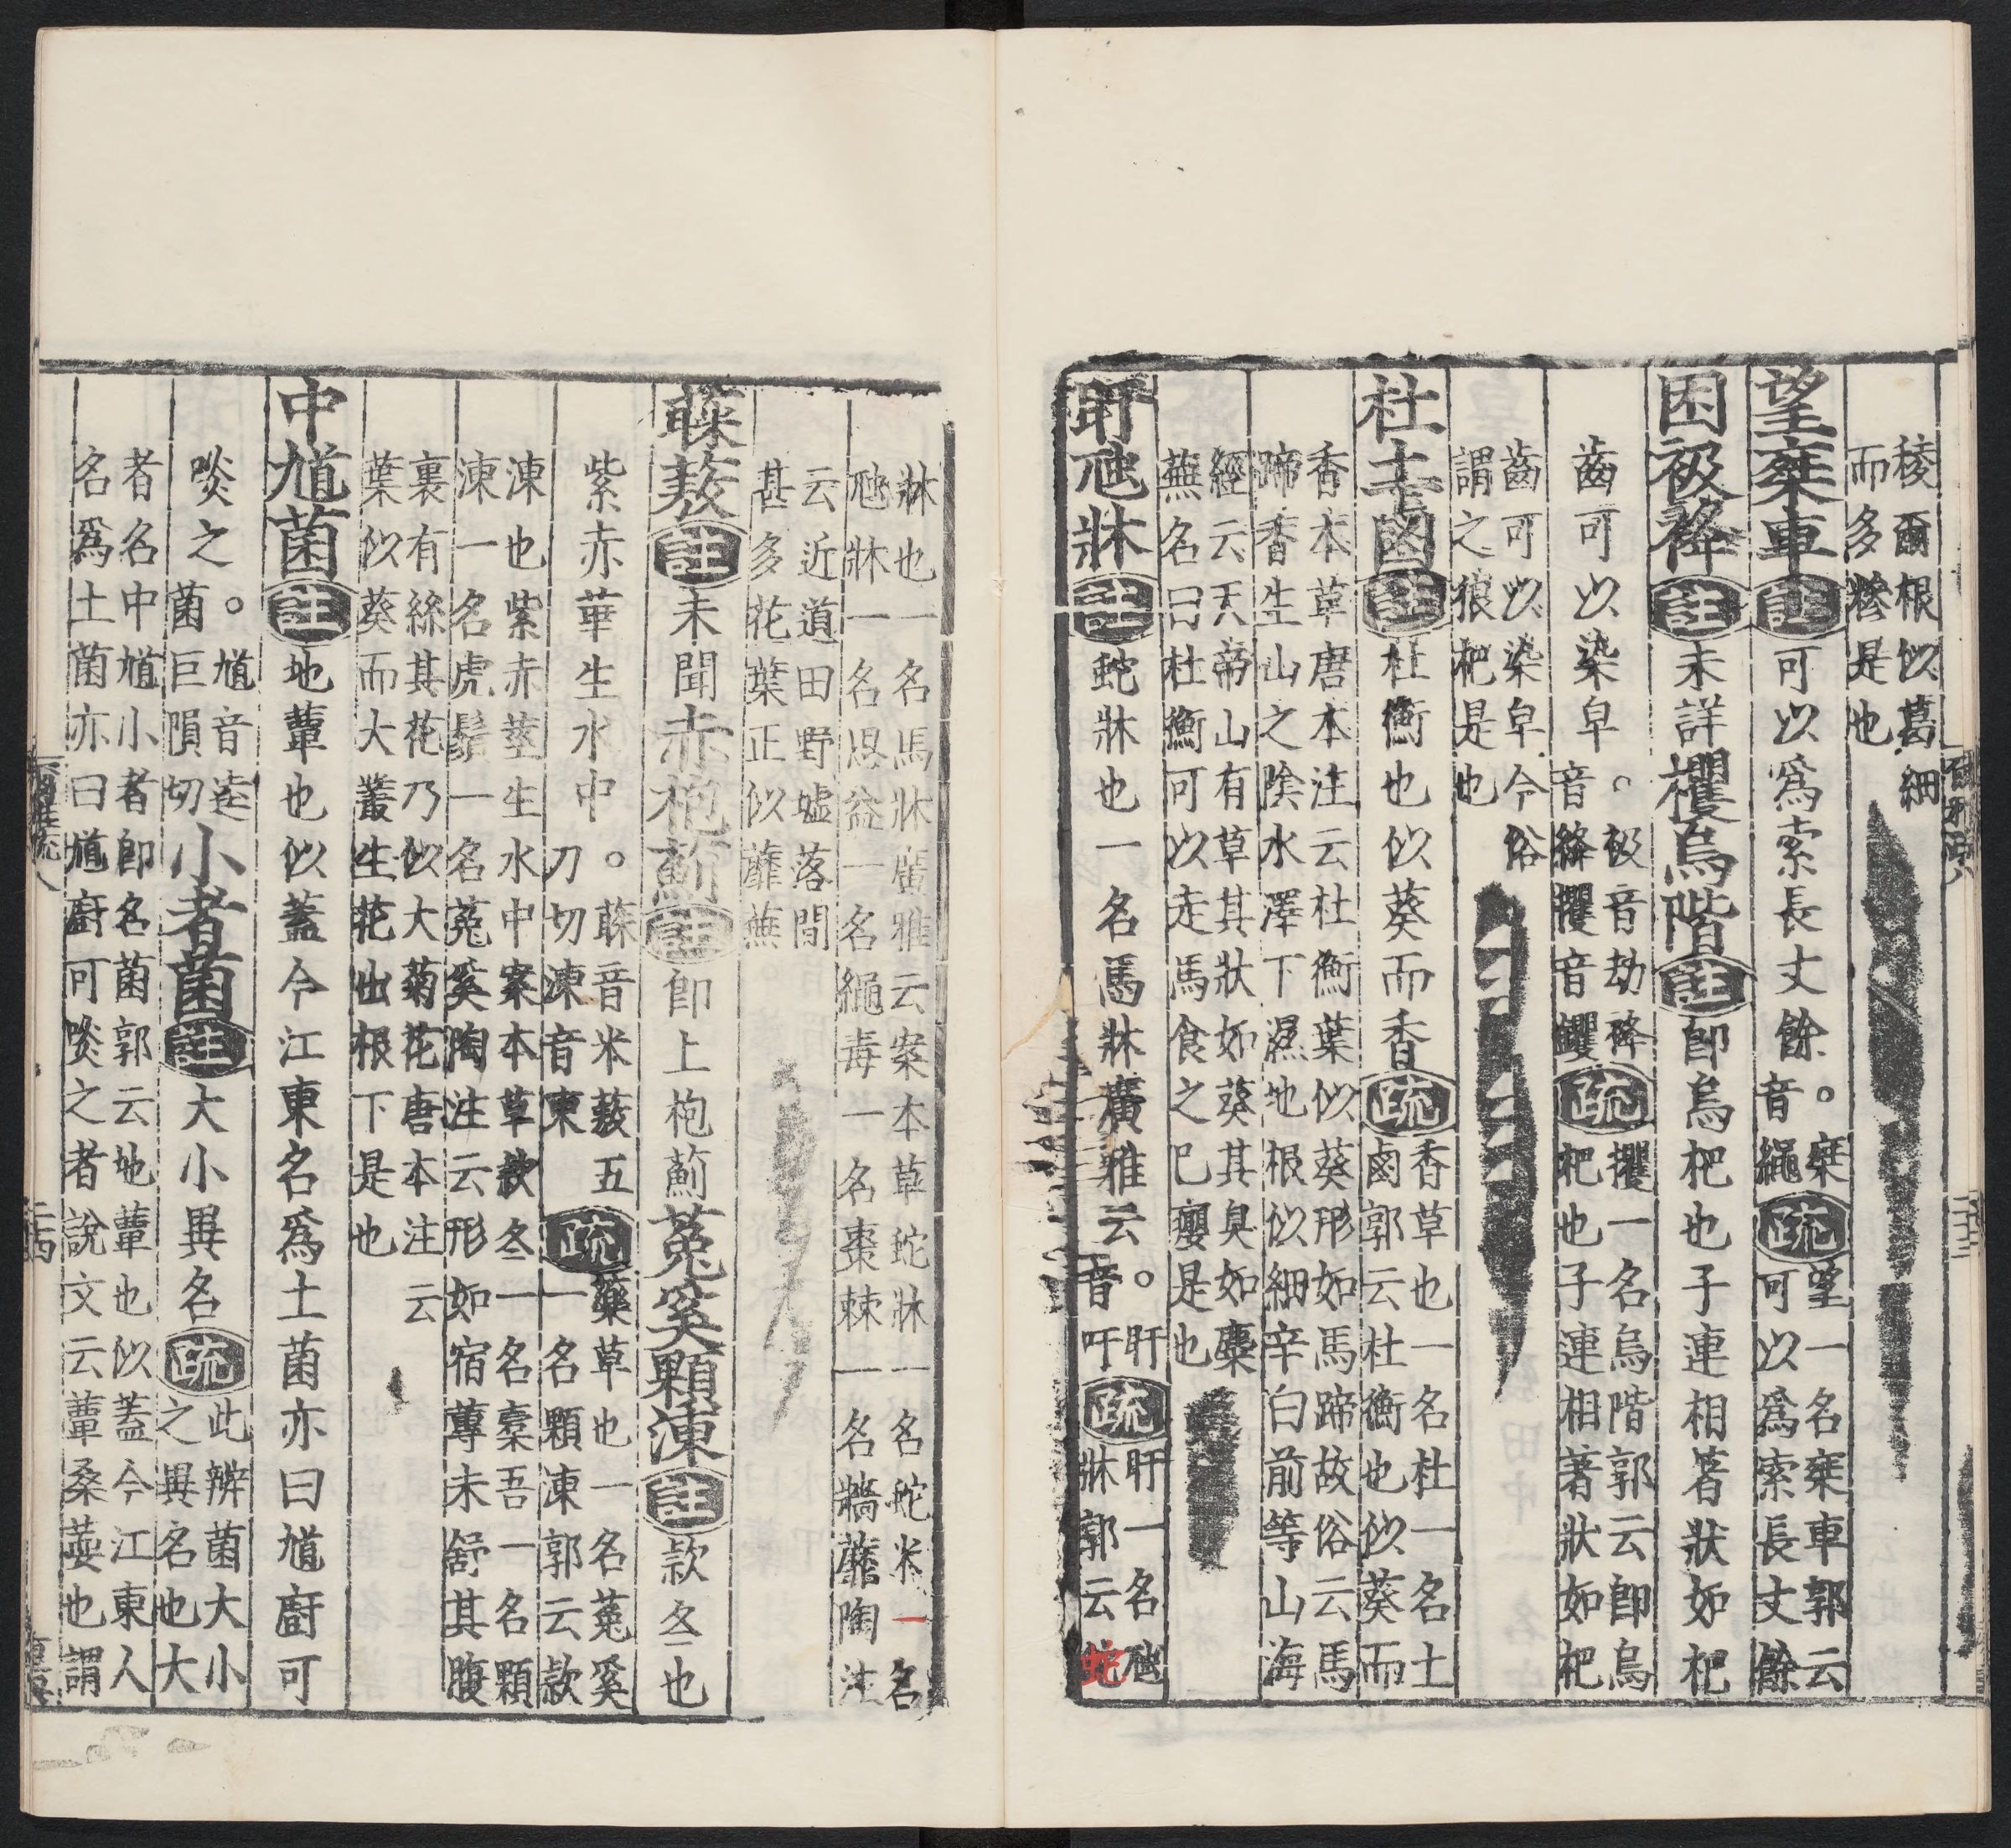 稜爾根似葛細
而多糝是也
望椉車註可以爲索長丈餘。椉音繩疏望一名椉車郭云可以爲索長丈餘
困衱袶註未詳欔烏階註卽烏杷也子連相著狀如杷
齒可以染皁。衱音劫袶音絳欔音钁疏欔一名烏階郭云卽烏杷也子連相著狀如杷
齒可以染皁今俗
謂之狼杷是也
杜土鹵註杜衡也似葵而香疏香草也一名杜一名土鹵郭云杜衡也似葵而
香本草唐本注云杜衡葉似葵形如馬蹄故俗云馬
蹄香生山之陰水澤下濕地根似細辛白前等山海
經云天帝山有草其狀如葵其臭如蘪
蕪名曰杜衡可以走馬食之已癭是也
盱虺牀註蛇牀也一名馬牀廣雅云。盱音吁疏盱一名虺牀郭云蛇
牀也一名馬牀廣雅云案本草蛇牀一名蛇米一名
虺牀一名思益一名繩毒一名棗棘一名牆蘼陶注
云近道田野墟落間
甚多花葉正似蘼蕪。
蔝蔜註未聞赤枹薊註卽上枹薊菟奚顆涷註款冬也
紫赤華生水中。蔝音米蔜五刀切涷音東疏藥草也一名菟奚一名顆涷郭云款
涷也紫赤莖生水中案本草款冬一名橐吾一名顆
涷一名虎鬚一名菟奚陶注云形如宿蓴未舒其腹
裏有絲其花乃似大菊花唐本注云
葉似葵而大叢生花出根下是也
中馗菌註地蕈也似蓋今江東名爲土菌亦曰馗廚可
啖之。馗音逵菌巨隕切小者菌註大小異名疏此辨菌大小之異名也大
者名中馗小者卽名菌郭云地蕈也似蓋今江東人
名爲土菌亦曰馗廚可啖之者說文云蕈桑耎也謂
二十三
二十四